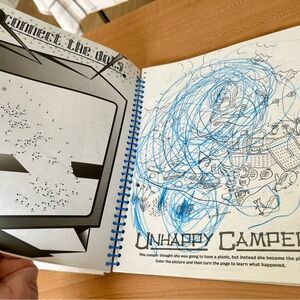 connect the dots
UNHAPPY CAMPER
This camper thought she was going to have a picnic, but instead she became the pi
Color the picture and then turn the page to learn what happened.